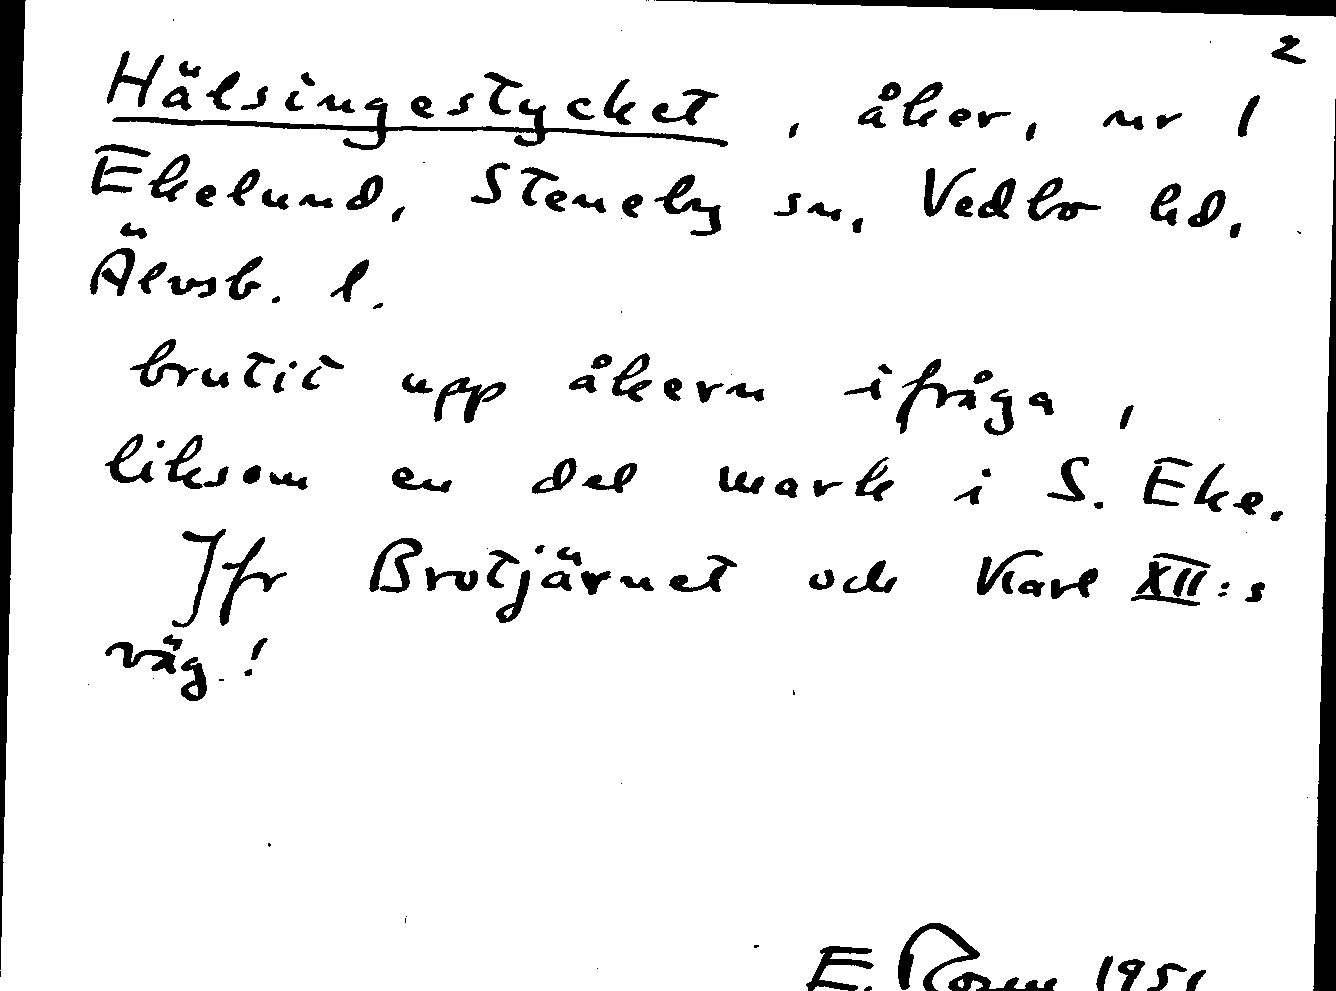 2
Hälsingestycket, åker, nr 1
Ekelund, Steneby sn, Vedbo hd,
Älvsb. l.
brutit upp åkern ifråga,
liksom en del mark i S. Eke.
Jfr Brotjärnet och Karl XII:s
väg!
E. 1951